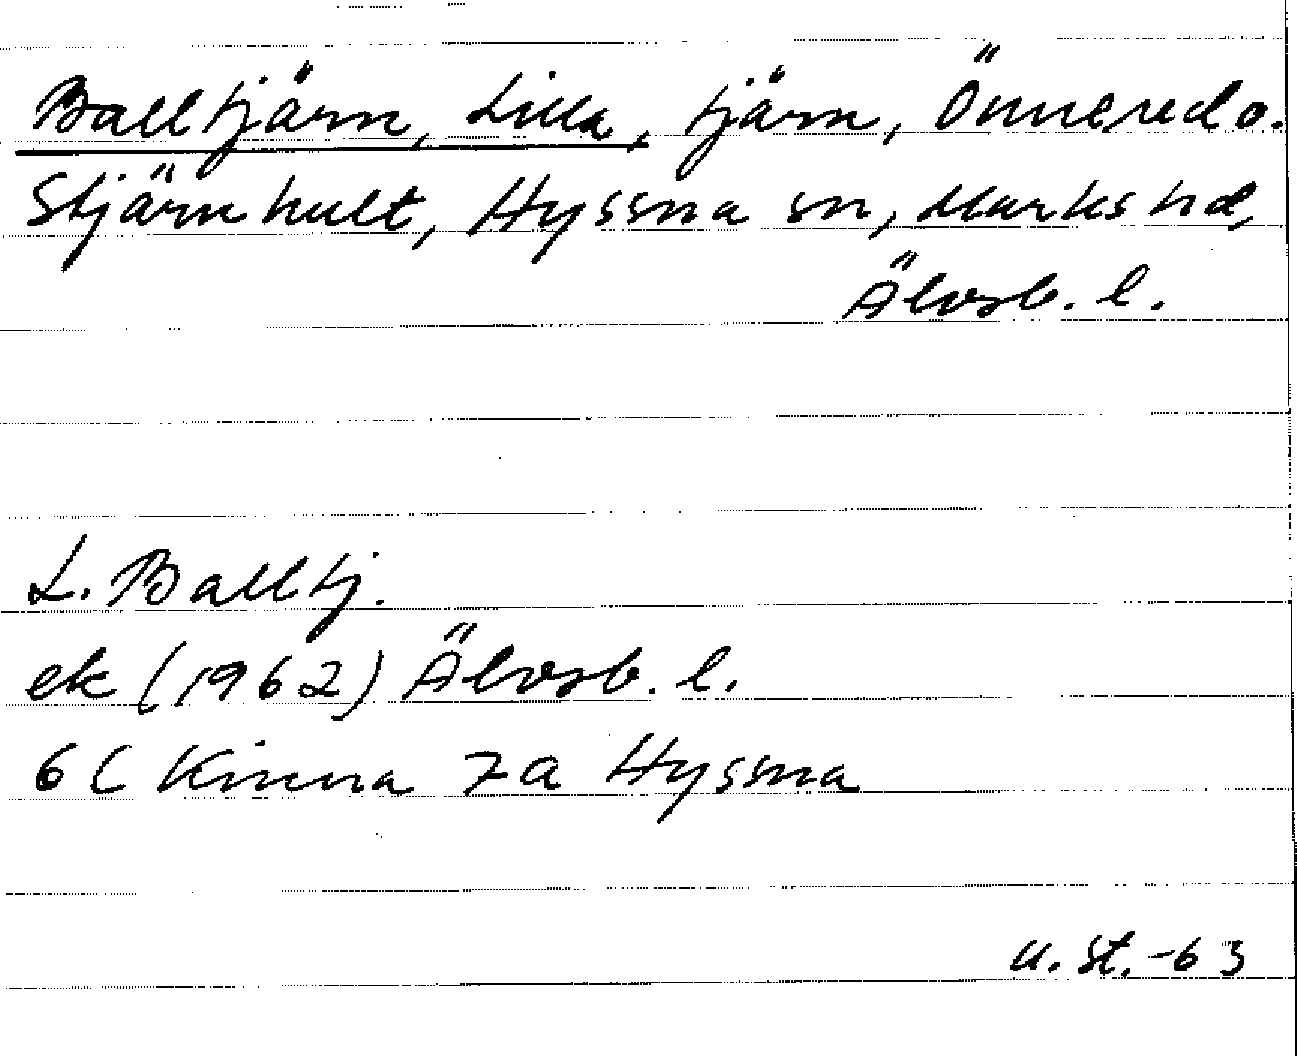 Balltjärn, Lilla, tjärn, Önnered o.
Stjärnhult, Hyssna sn, Marks hd,
Älvsb. l.
L. Balltj.
ek (1962) Älvsb. l.
6C Kinna 7a Hyssna
U. St. -63